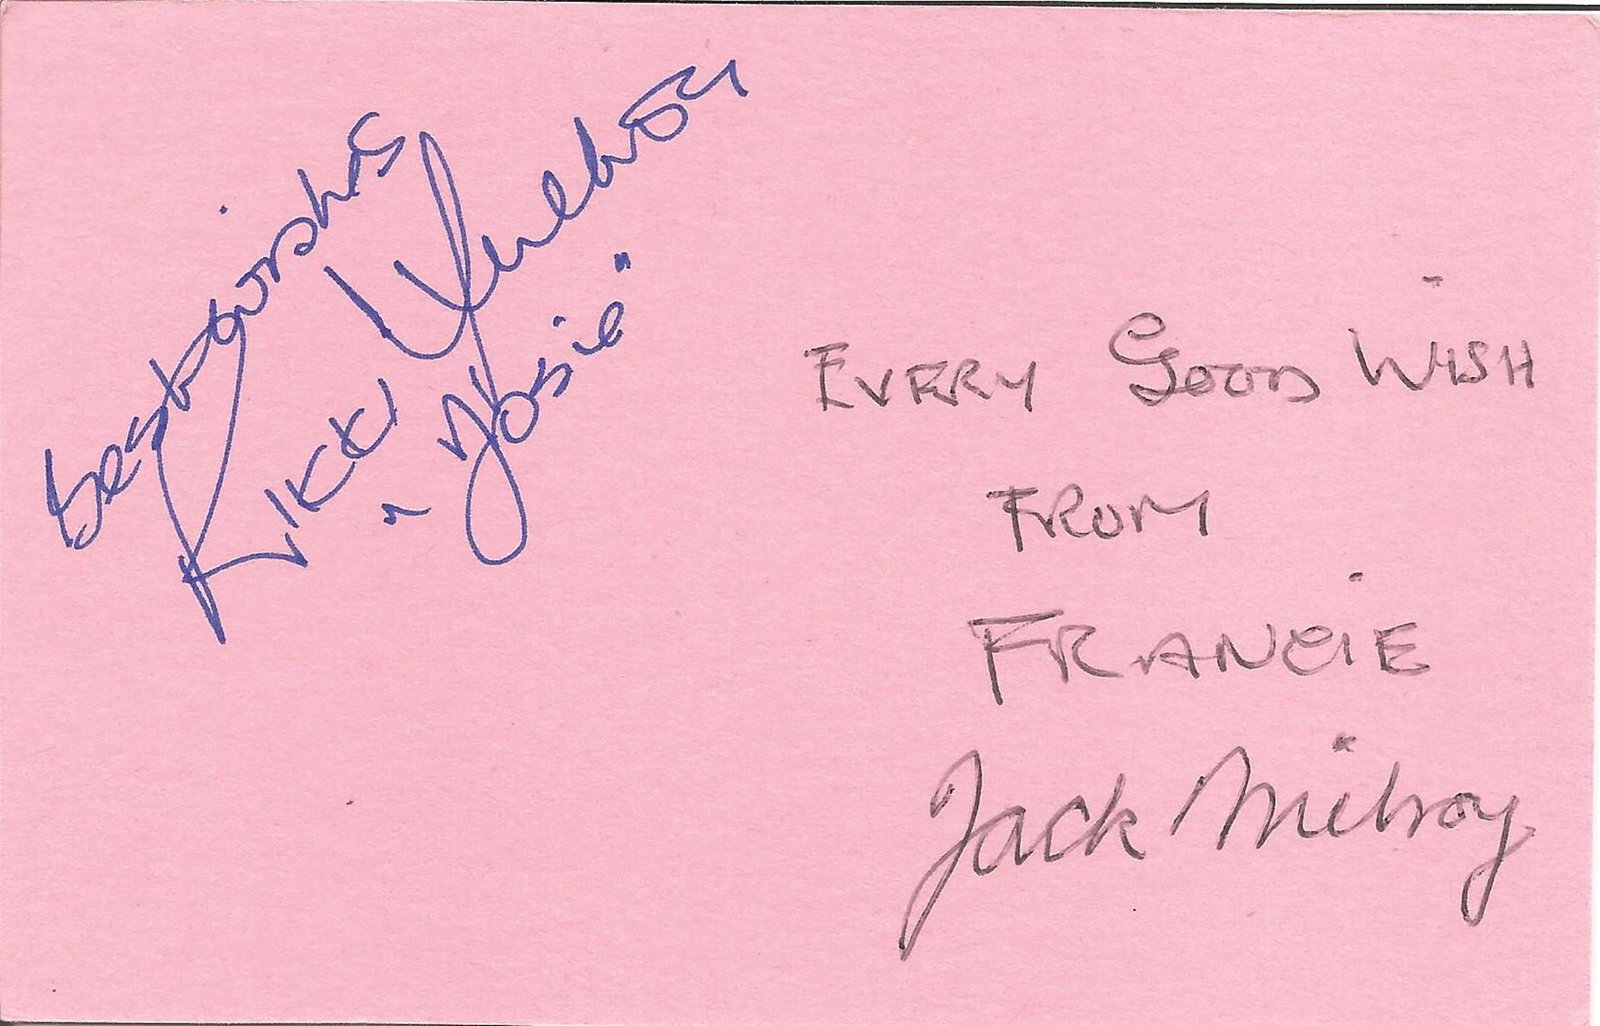 Best wishes
Rikki Fulton
"Josie"
EVERY GOOD WISH
FROM
FRANCIE
Jack Milroy